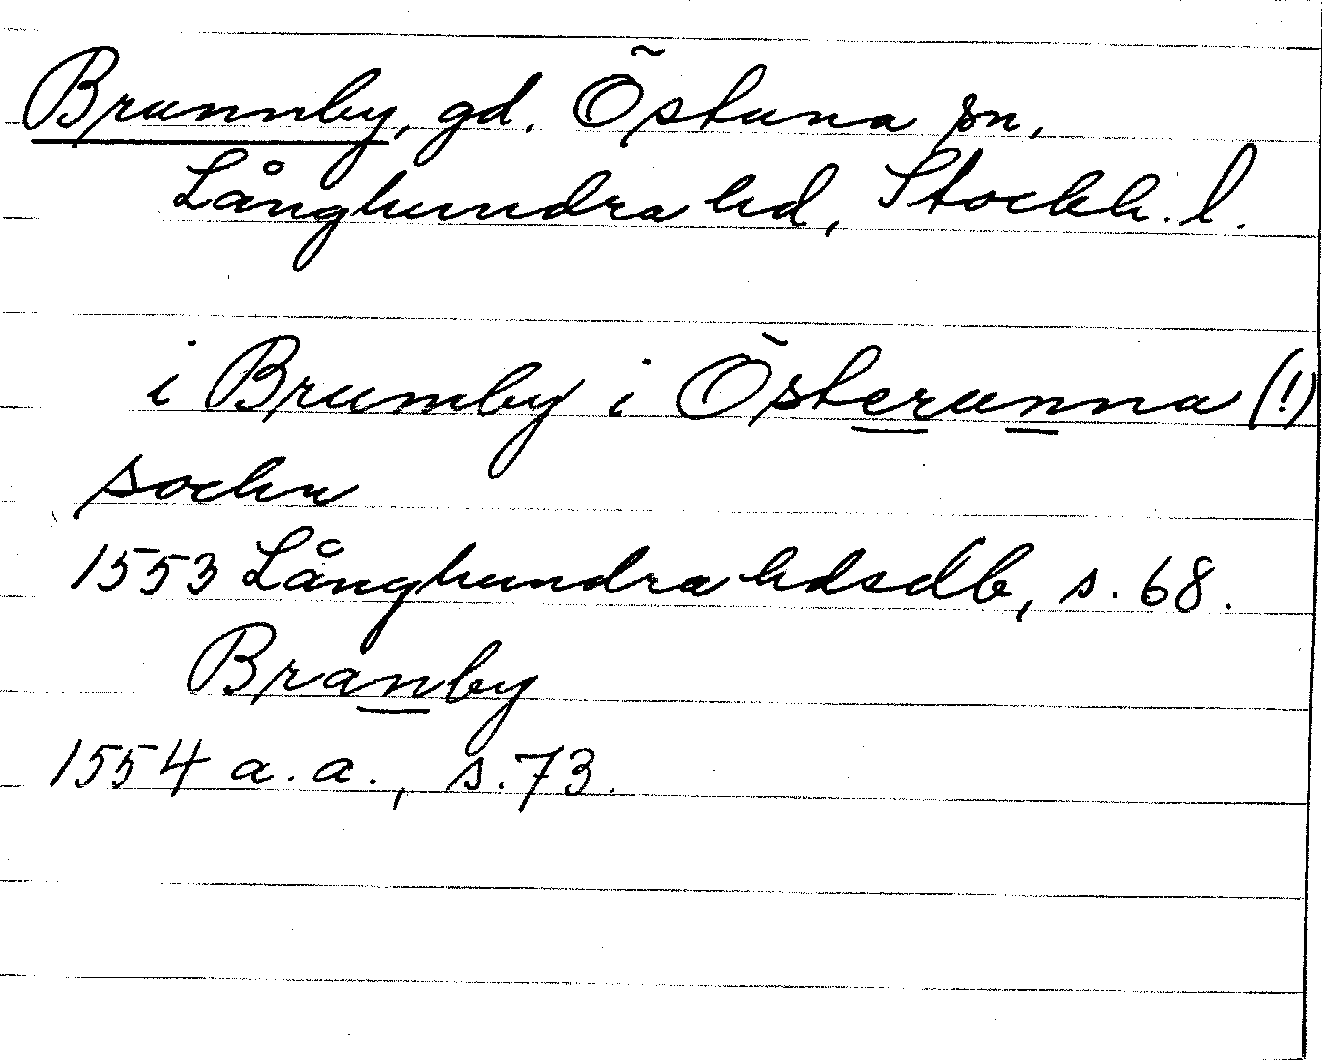 Brunnby, gd. Östuna sn,
Långhundra hd, Stockh. l.
i Brumby i Österunna (!)
sochn
1553 Långhundra hdsdb, s. 68.
Branby
1554 a. a., s. 73.